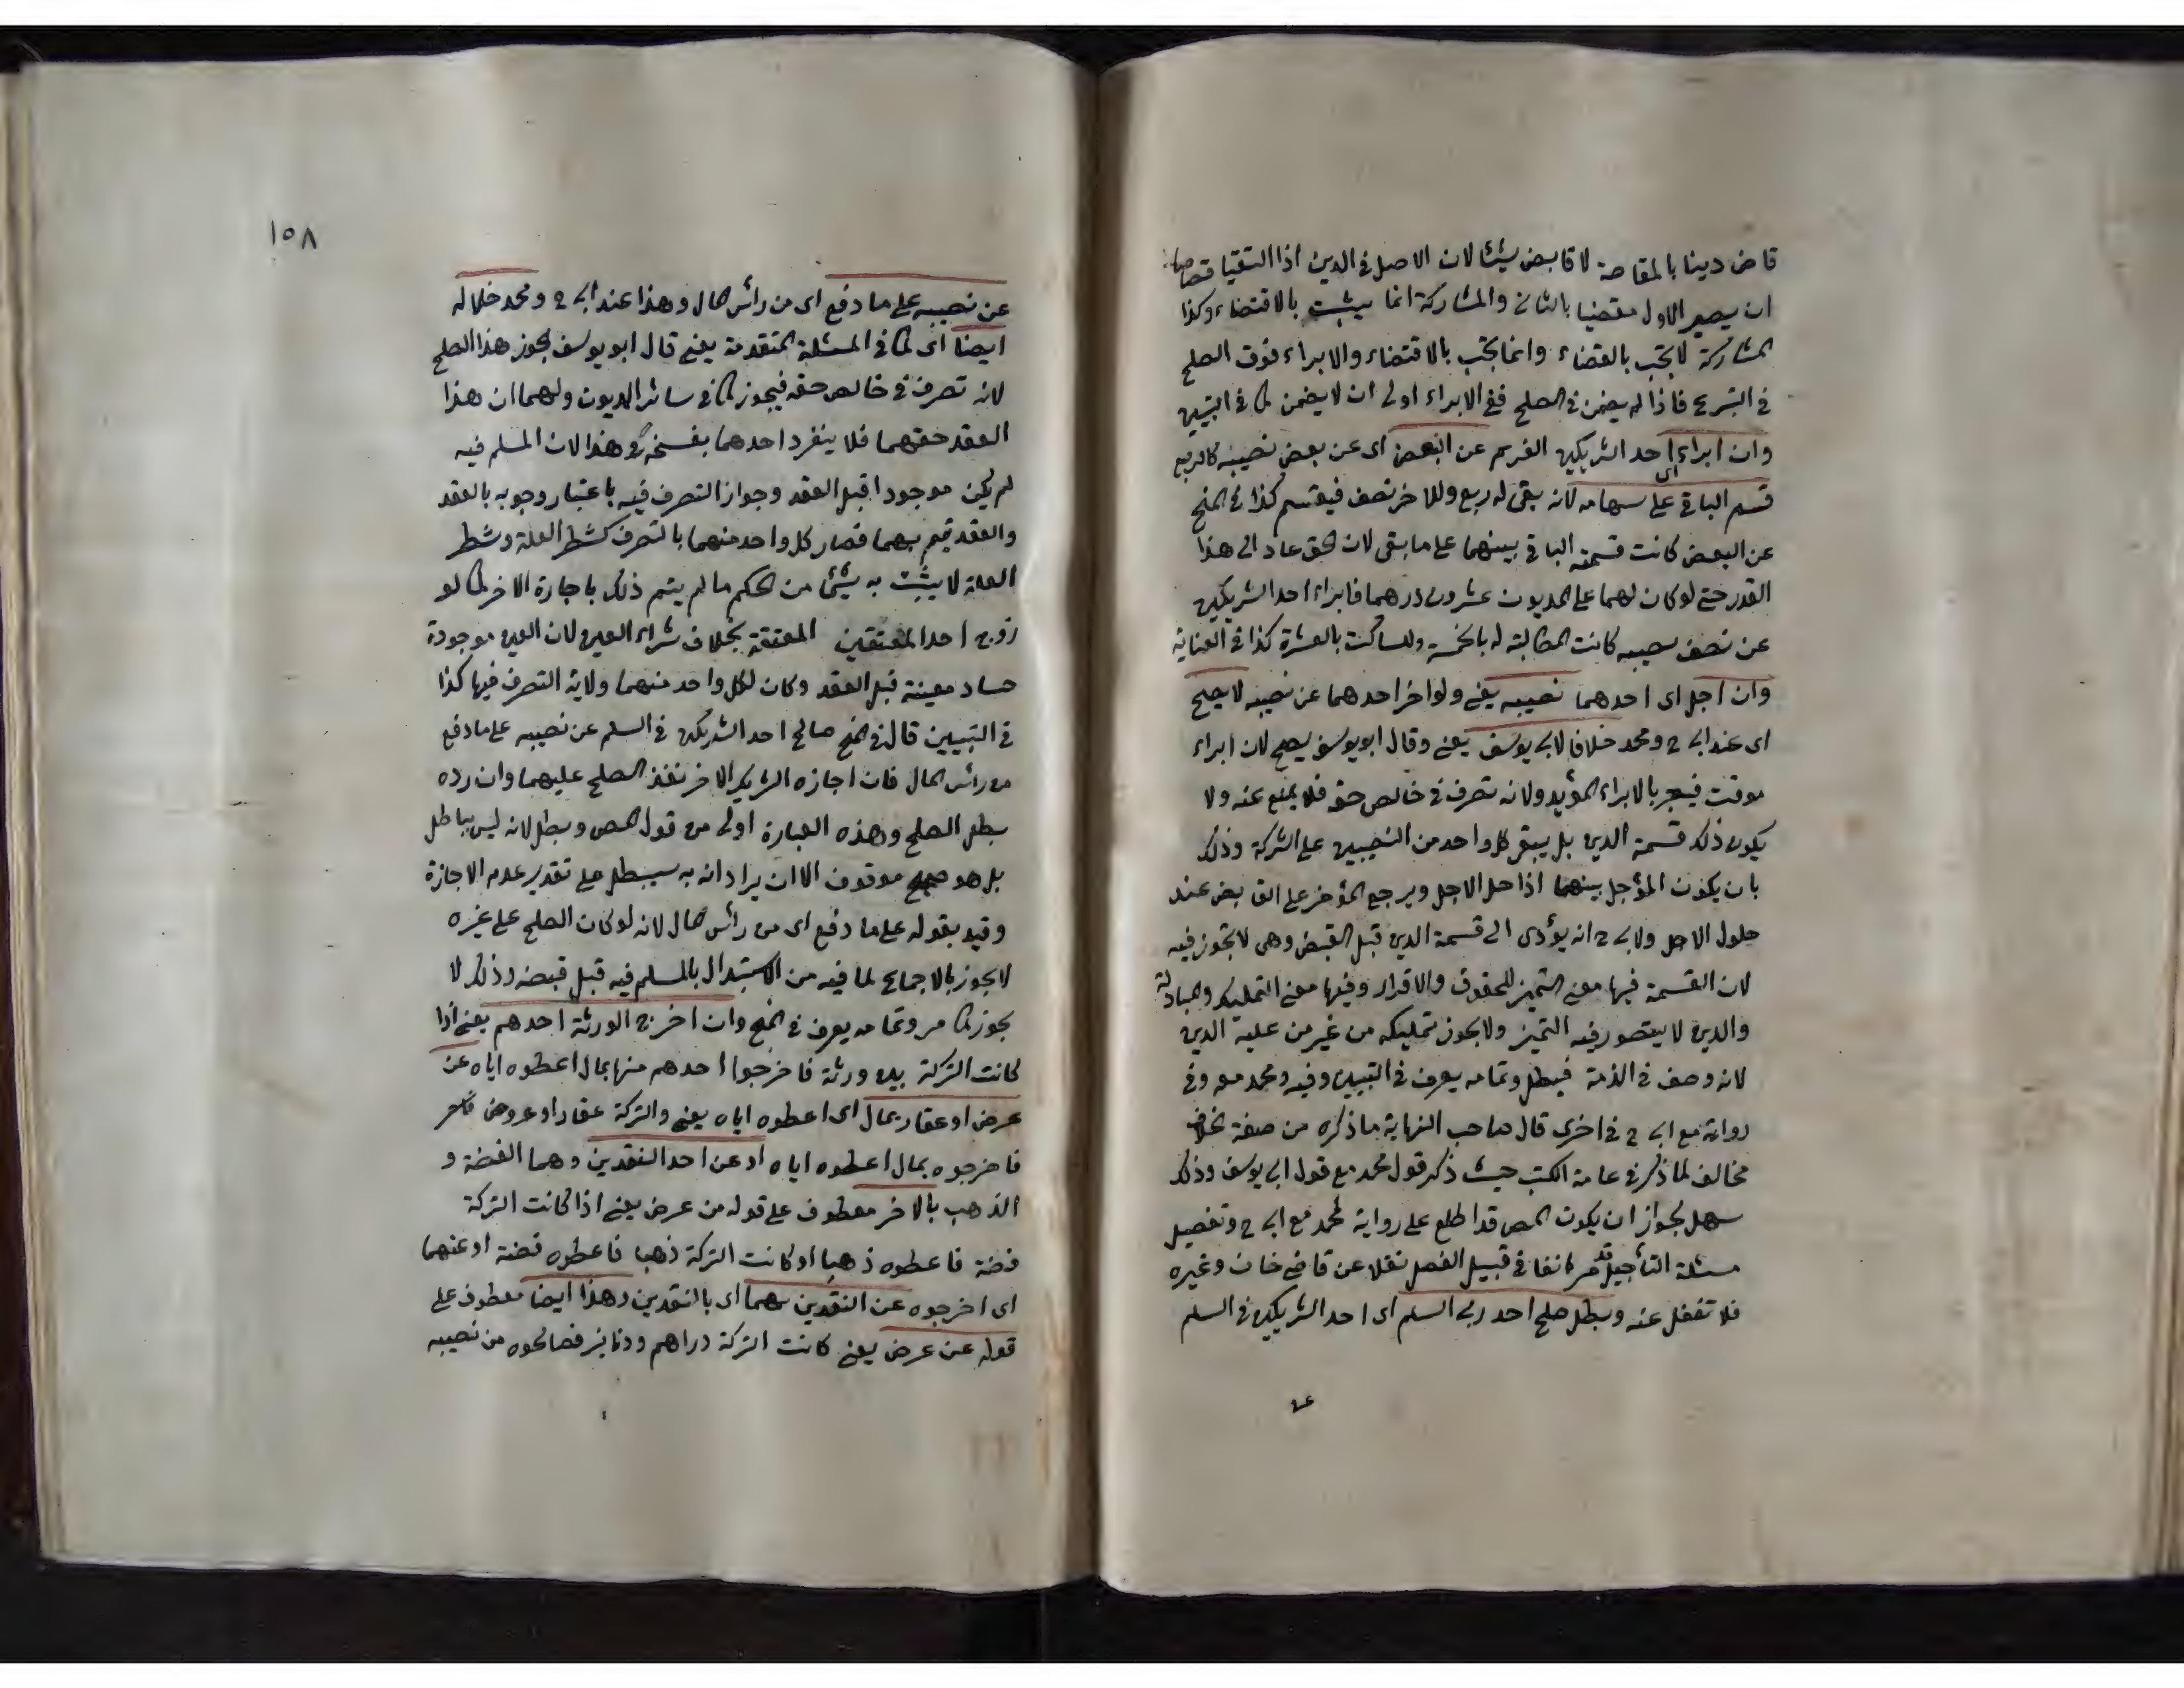 قاض دينا بالمقاصة لا قابض شيئا لان الاصل في الدين اذا التقيا قصاصا
ان يصير الاول مقضيا بالثاني والمشاركة انما يثبت بالاقتضاء وكذا
المشاركة لا تجب بالقضاء وانما تجب بالاقتضاء والابراء فوق الصلح
في التبرع فاذا لم يضمن في الصلح ففي الابراء اولى ان لا يضمن كما في التبيين
وان ابراء احد الشريكين الغريم عن البعض اى عن بعض نصيبه كالربع
قسم الباقي على سهامه لانه بقى له ربع وللاخر نصف فيقسم كذا في المنح
عن البعض كانت قسمة الباقي بينهما على ما بقى لان الحق عاد الى هذا
القدر حتى لو كان لهما على المديون عشرون درهما فابراء احد الشريكين
عن نصف نصيبه كانت المطالبة له بالخمسة وللساكت بالعشرة كذا في العناية
وان اجل اى احدهما نصيبه يعنى ولو اخر احدهما عن نصيبه لا يصح
اى عند ابى ح ومحمد خلافا لابى يوسف يعنى وقال ابو يوسف يصح لان ابراء
موقت فيعتبر بالابراء المؤبد ولانه تصرف في خالص حقه فلا يمنع عنه ولا
يكون ذلك قسمة الدين بل يبقى كل واحد من النصيبين على الشركة وذلك
بان يكون المؤجل بينهما اذا حل الاجل ويرجع المؤخر على القابض عند
حلول الاجل ولابى ح انه يؤدى الى قسمة الدين قبل القبض وهى لا تجوز فيه
لان القسمة فيها معنى التميز للحقوق والاقرار وفيها معنى التمليك والمبادلة
والدين لا يتصور فيه التميز ولا يجوز تمليكه من غير من عليه الدين
لانه وصف في الذمة فيبطل وتمامه يعرف في التبيين وفيه ومحمد معه وفى
رواية مع ابى ح في اخرى قال صاحب النهاية ما ذكره من صفة
مخالف لما ذكر في عامة الكتب حيث ذكر قول محمد مع قول ابى يوسف وذلك
سهل لجواز ان يكون المص قد اطلع على رواية لمحمد مع ابى ح وتفصيل
مسئلة التأجيل قد مر انفا في قبيل الفصل نقلا عن قاضى خان وغيره
فلا تغفل عنه وبطل صلح احد ربى السلم اى احد الشريكين في السلم
عن
١٥٨
عن نصيبه على ما دفع اى من رأس المال وهذا عند ابى ح ومحمد خلافا له
ايضا اى كما في المسئلة المتقدمة يعنى قال ابو يوسف يجوز هذا الصلح
لانه تصرف في خالص حقه فيجوز كما في سائر الديون ولهما ان هذا
العقد حقهما فلا ينفرد احدهما بفسخه وهذا لان المسلم فيه
لم يكن موجودا قبل العقد وجواز التصرف فيه باعتبار وجوبه بالعقد
والعقد تم بهما فصار كل واحد منهما بالتصرف كشطر العلة وشطر
العلة لا يثبت به شيئ من الحكم ما لم يتم ذلك باجازة الاخر كما لو
زوج احد المعتقين المعتقة بخلاف شراء العين لان العين موجودة
حسا ومعينة قبل العقد وكان لكل واحد منهما ولاية التصرف فيها كذا
في التبيين قال في المنح صالح احد الشريكين في السلم عن نصيبه على ما دفع
من رأس المال فان اجازه الشريك الاخر نفذ الصلح عليهما وان رده
بطل الصلح وهذه العبارة اولى من قول المص وبطل لانه ليس بباطل
بل هو صحيح موقوف الا ان يراد انه به سيبطل على تقدير عدم الاجازة
وقيد بقوله على ما دفع اى من رأس المال لانه لو كان الصلح على غيره
لا يجوز بالاجماع لما فيه من الاستبدال بالمسلم فيه قبل قبضه وذلك لا
يجوز كما مر وتمامه يعرف في المنح وان اخرج الورثة احدهم يعنى اذا
كانت التركة بين ورثة فاخرجوا احدهم منها بمال اعطوه اياه عن
عرض او عقار بمال اى اعطوه اياه يعنى والتركة عقار او عروض
فاخرجوه بمال اعطوه اياه او عن احد النقدين وهما الفضة و
الذهب بالاخر معطوف على قوله من عرض يعنى اذا كانت التركة
فضة فاعطوه ذهبا او كانت التركة ذهبا فاعطوه فضة او عنهما
اى اخرجوه عن النقدين بهما اى بالنقدين وهذا ايضا معطوف على
قوله عن عرض يعنى كانت التركة دراهم ودنانير فصالحوه من نصيبه